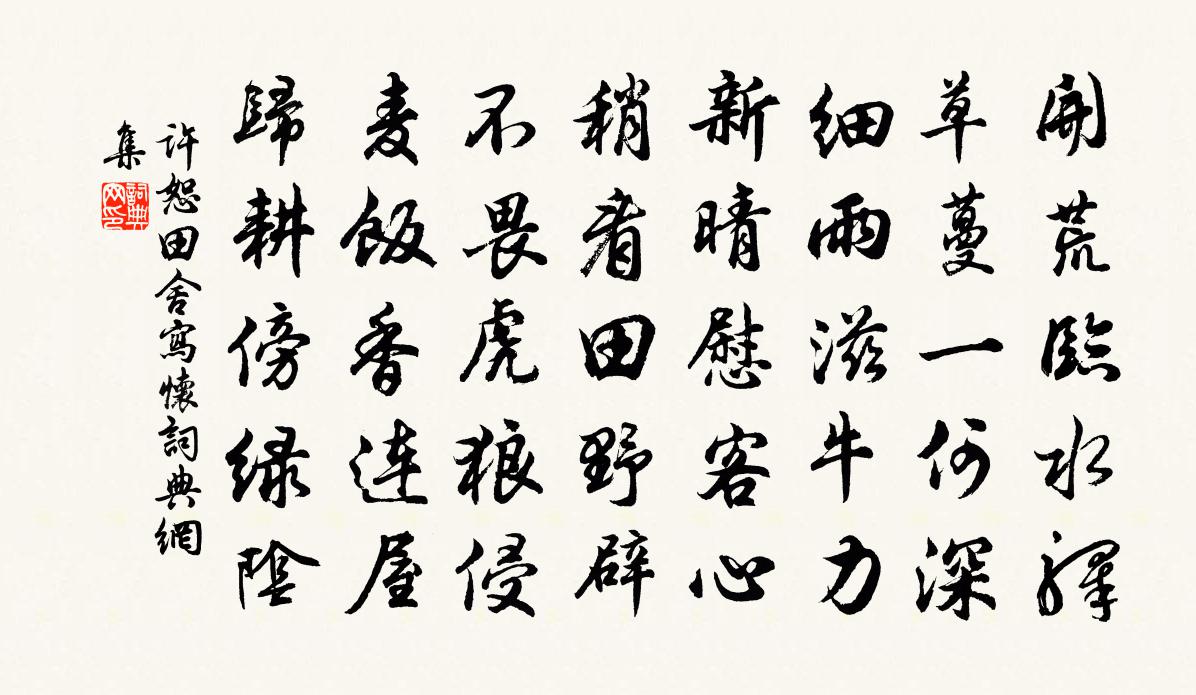 開荒臨水驛
草蔓一何深
細雨滋牛力
新晴慰客心
稍看田野辟
不畏虎狼侵
麦飯香連屋
歸耕傍緑陰
許恕田舍寫懷詞典網
集
詞典网印